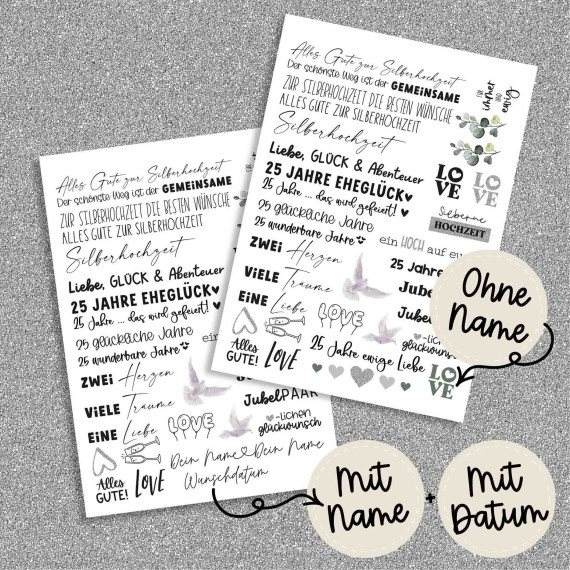 Alles Gute zur Silberhochzeit
Der schönste Weg ist der GEMEINSAME
ZUR SILBERHOCHZEIT DIE BESTEN WÜNSCHE
ALLES GUTE ZUR SILBERHOCHZEIT
Silberhochzeit
Liebe, GLÜCK & Abenteuer
25 JAHRE EHEGLÜCK
25 Jahre ... das wird gefeiert!
25 glückliche Jahre
25 wunderbare Jahre
ZWEI Herzen
VIELE Träume
EINE Liebe
LOVE
Alles GUTE!
LOVE
25 Jahre ewige Liebe
FÜR immer UND ewig
LOVE
LOVE
Silberne
HOCHZEIT
ein HOCH auf eu
25 Jahre
Jubel
Jubel
-lichen
glückwunsch
LOVE
Ohne
Name
Alles Gute zur Silberhochzeit
Der schönste Weg ist der GEMEINSAME
ZUR SILBERHOCHZEIT DIE BESTEN WÜNSCHE
ALLES GUTE ZUR SILBERHOCHZEIT
Silberhochzeit
Liebe, GLÜCK & Abenteuer
25 JAHRE EHEGLÜCK
25 Jahre ... das wird gefeiert!
25 glückliche Jahre
25 wunderbare Jahre
ein
ZWEI Herzen
VIELE Träume
EINE Liebe
LOVE
JubelPAAR
-lichen
glückwunsch
Alles GUTE!
LOVE
Dein Name Dein Name
Wunschdatum
Mit
Name
+
Mit
Datum